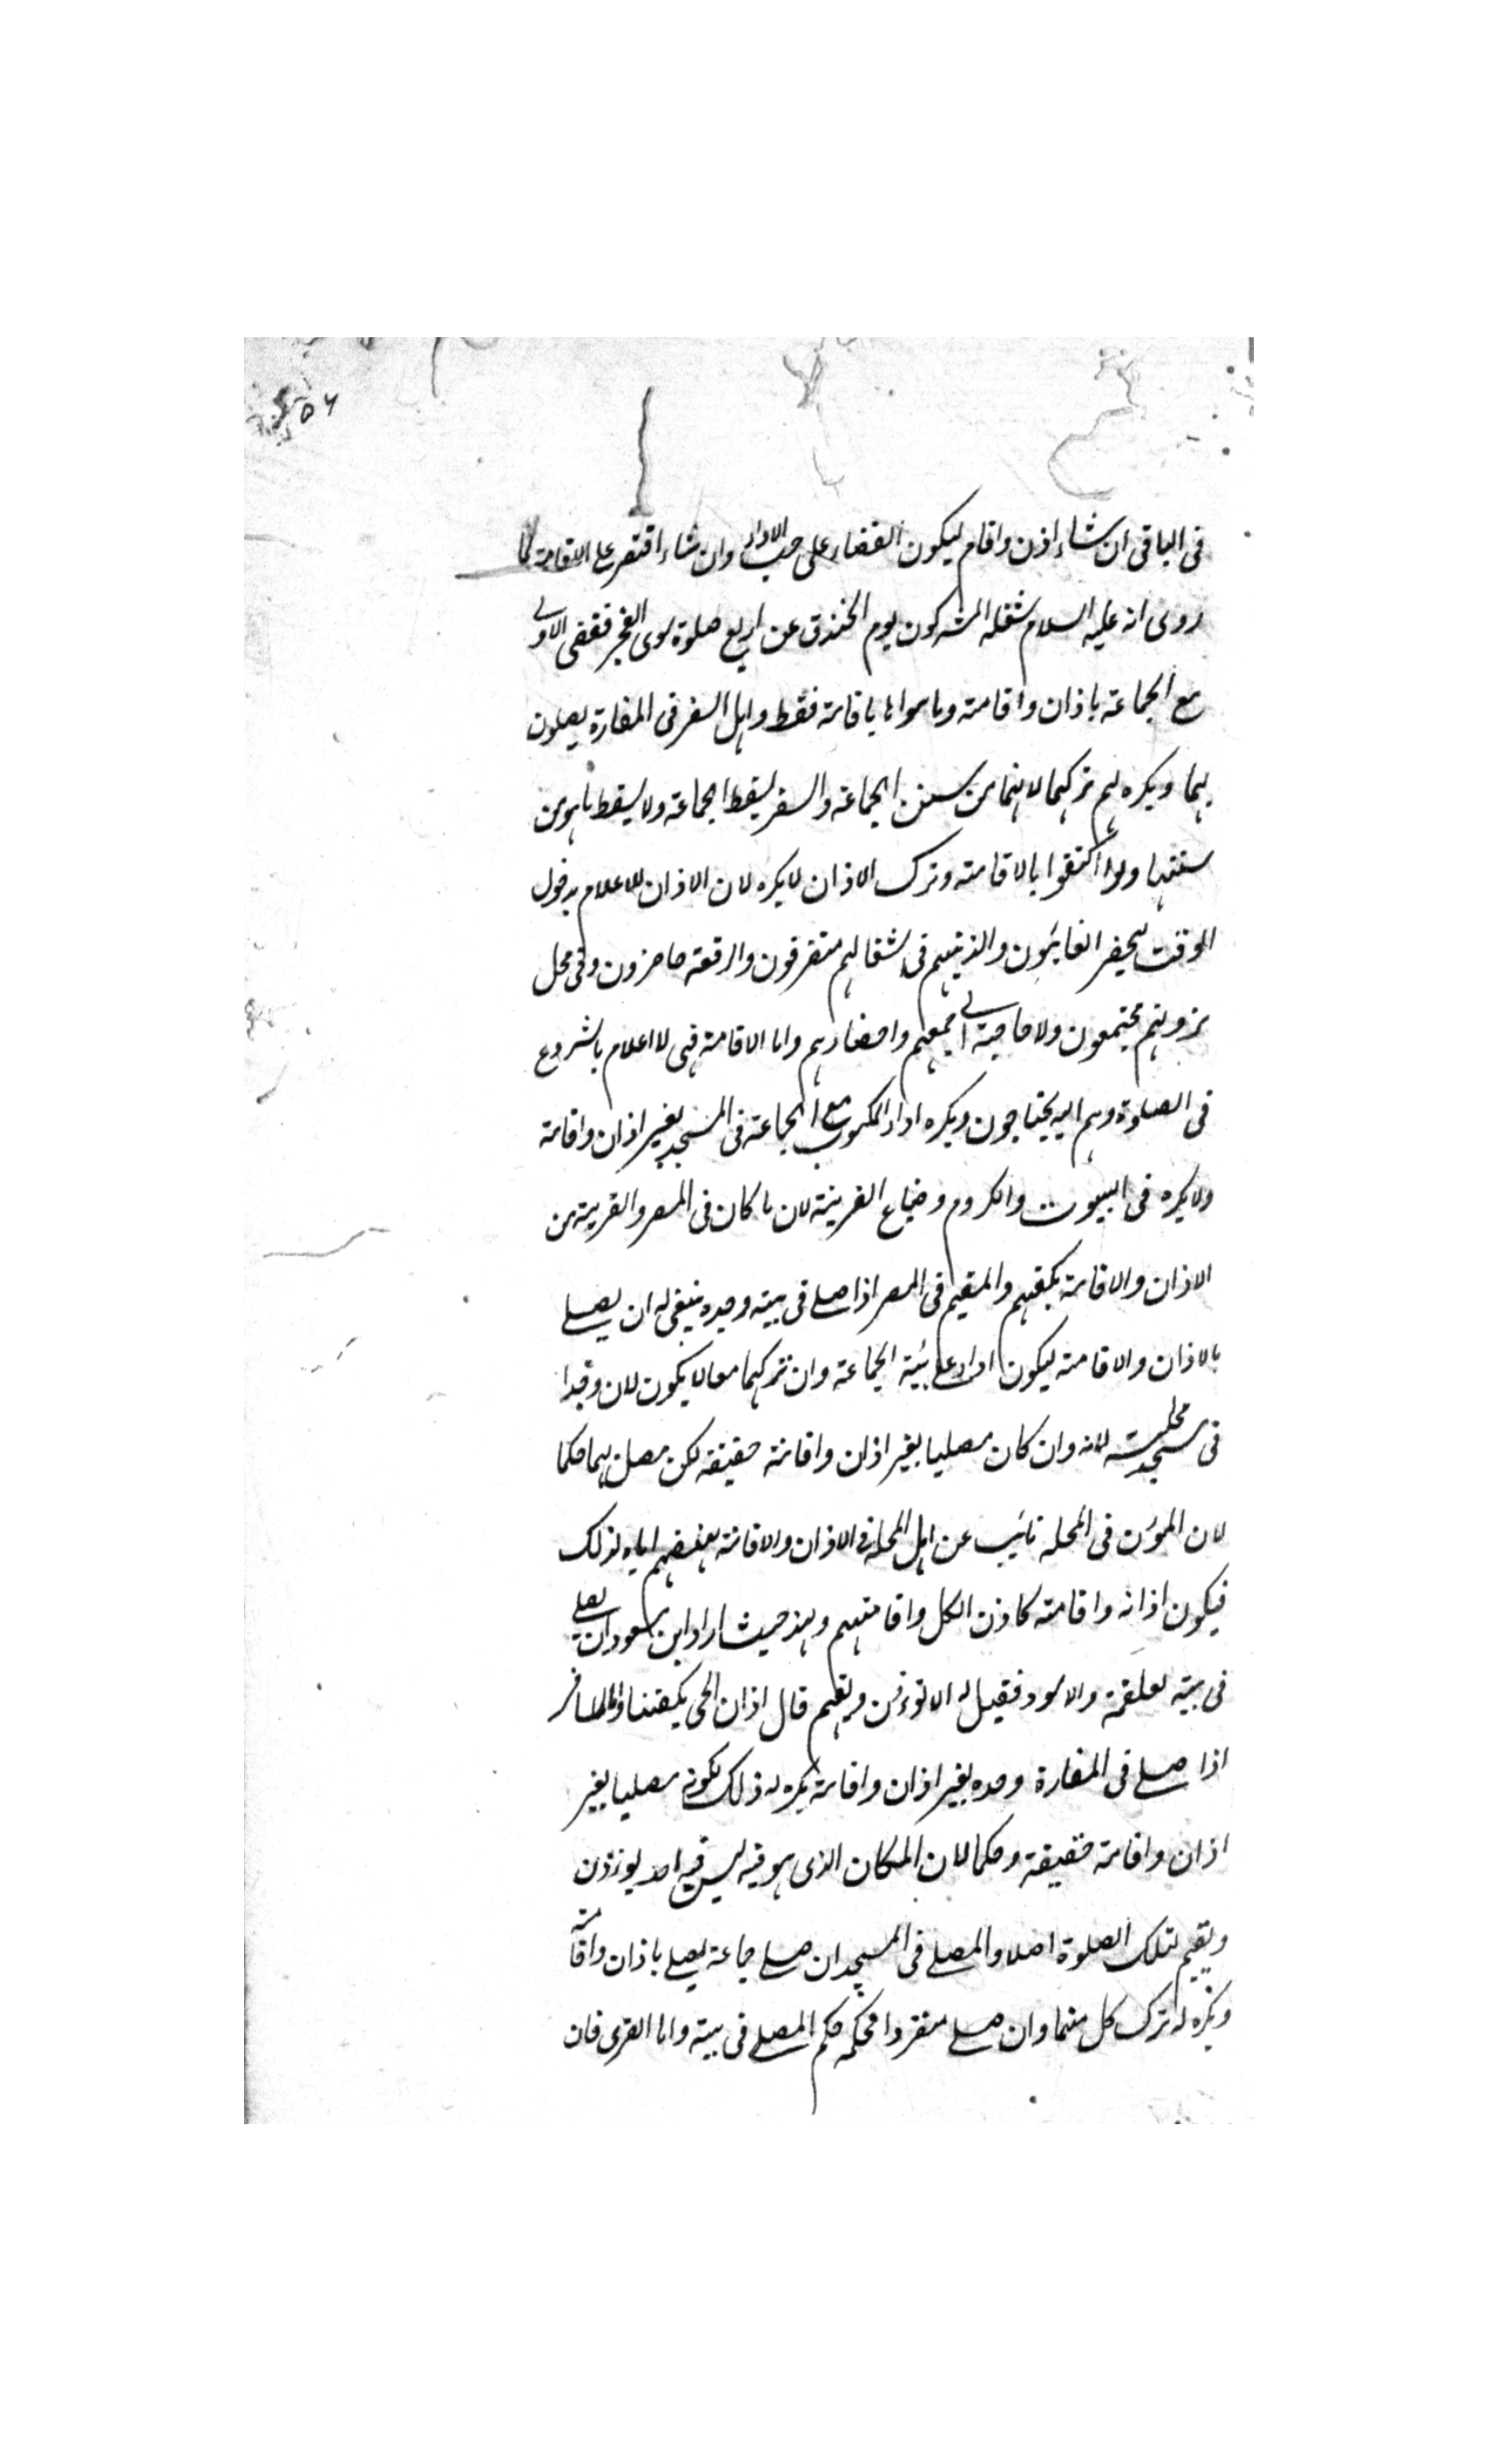 ۵۶
فى الباقى ان شاء اذن واقام ليكون القضاء على حسب الاداء وان شاء اقتصر على الاقامة لما
روى انه عليه السلام شغله المشركون يوم الخندق عن اربع صلوة سوى الفجر فقضى الاولى
مع الجماعة باذان واقامة وما سواها باقامة فقط واهل السفر فى المفازة يصلون
بهما ويكره لهم تركهما لانهما من سنن الجماعة والسفر يسقط الجماعة ولا يسقط ما هو من
سننها ولو اكتفوا بالاقامة وترك الاذان لا يكره لان الاذان للاعلام بدخول
الوقت ليحضر الغايبون والذينهم فى اشغالهم متفرقون والرفقة حاضرون وفى محل
نزولهم مجتمعون ولا حاجة الى جمعهم واحضارهم واما الاقامة فهى لا اعلام بالشروع
فى الصلوة وهم اليه يحتاجون ويكره اداء المكتوب مع الجماعة فى المسجد بغير اذان واقامة
ولا يكره فى البيوت والكروم وضياع القرية لان ما كان فى المصر والقرية من
الاذان والاقامة يكفيهم والمقيم فى المصر اذا صلى فى بيته وحده ينبغى له ان يصلى
بالاذان والاقامة ليكون اداء على هيئة الجماعة وان تركهما معا لا يكون لان وقدا
فى مسجد محلته لانه وان كان مصليا بغير اذان واقامة حقيقة لكن مصل بهما حكما
لان المؤذن فى المحله نائب عن اهل المحلة فى الاذان والاقامة بنصبهم اياه لذلك
فيكون اذانه واقامته كاذن الكل واقامتهم وبهذ حيث اراد ابن مسعود ان يصلى
فى بيته لعلقمة والاسود فقيل له الا تؤذن وتقيم قال اذان الحى يكفينا والمسافر
اذا صلى فى المفازة وحده بغير اذان واقامة يكره له ذلك لكونه مصليا بغير
اذان واقامة حقيقة وحكما لان المكان الذى هو فيه ليس فيه احد يؤذن
ويقيم لتلك الصلوة اصلا والمصلى فى المسجد ان صلى جماعة يصلى باذان واقامة
ويكره له ترك كل منهما وان صلى منفردا فحكمه حكم المصلى فى بيته واما القرى فان